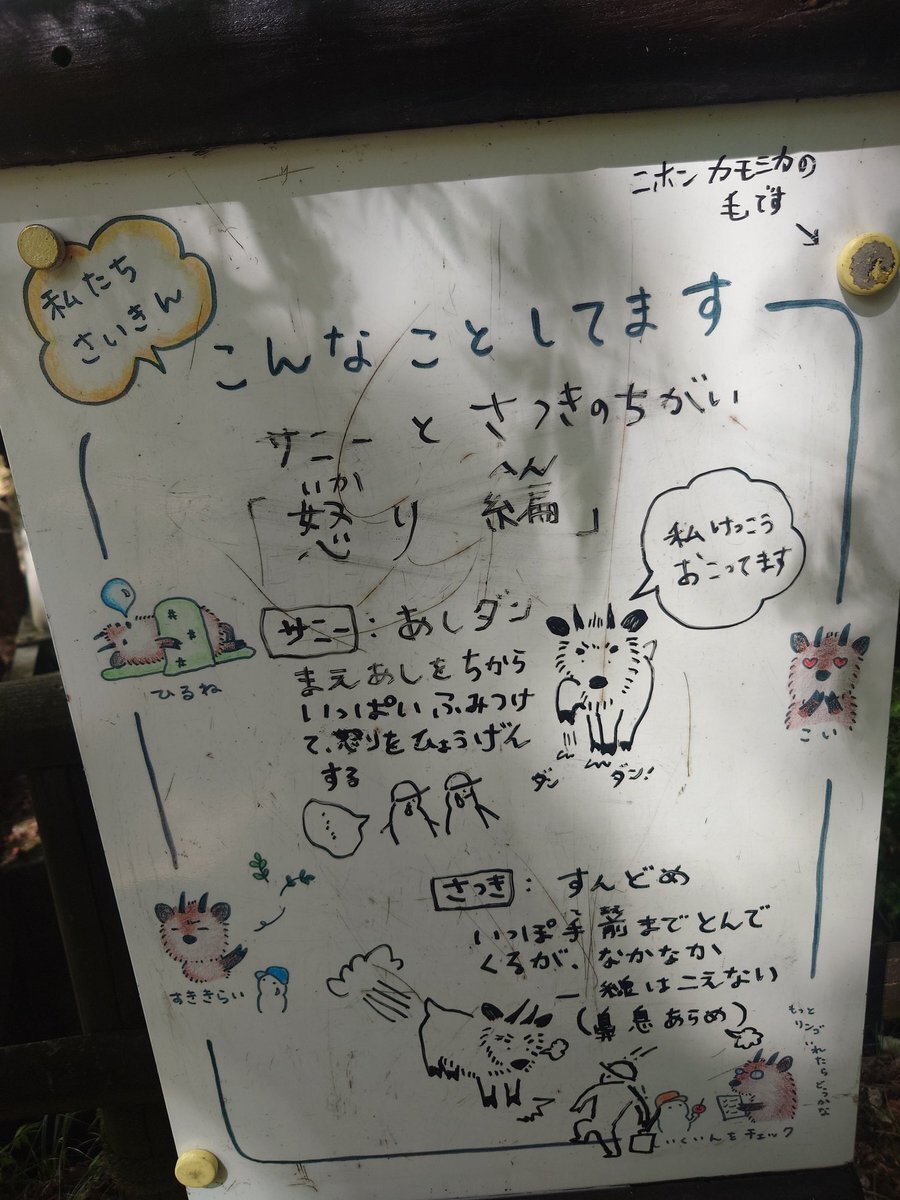 ニホンカモシカの
毛です
私たち
さいきん
こんなことしてます
サニーとさつきのちがい
いか へん
「怒り編」
私けっこう
おこってます
サニー：あしダン
まえあしをちから
いっぱいふみつけ
て、怒りをひょうげん
する
ダン ダン！
ひるね
こい
さつき：すんどめ
いっぽ手前までとんで
くるが、なかなか
一線はこえない
（鼻息あらめ）
すききらい
もっと
リンゴ
いれたらどうかな
いくいんをチェック